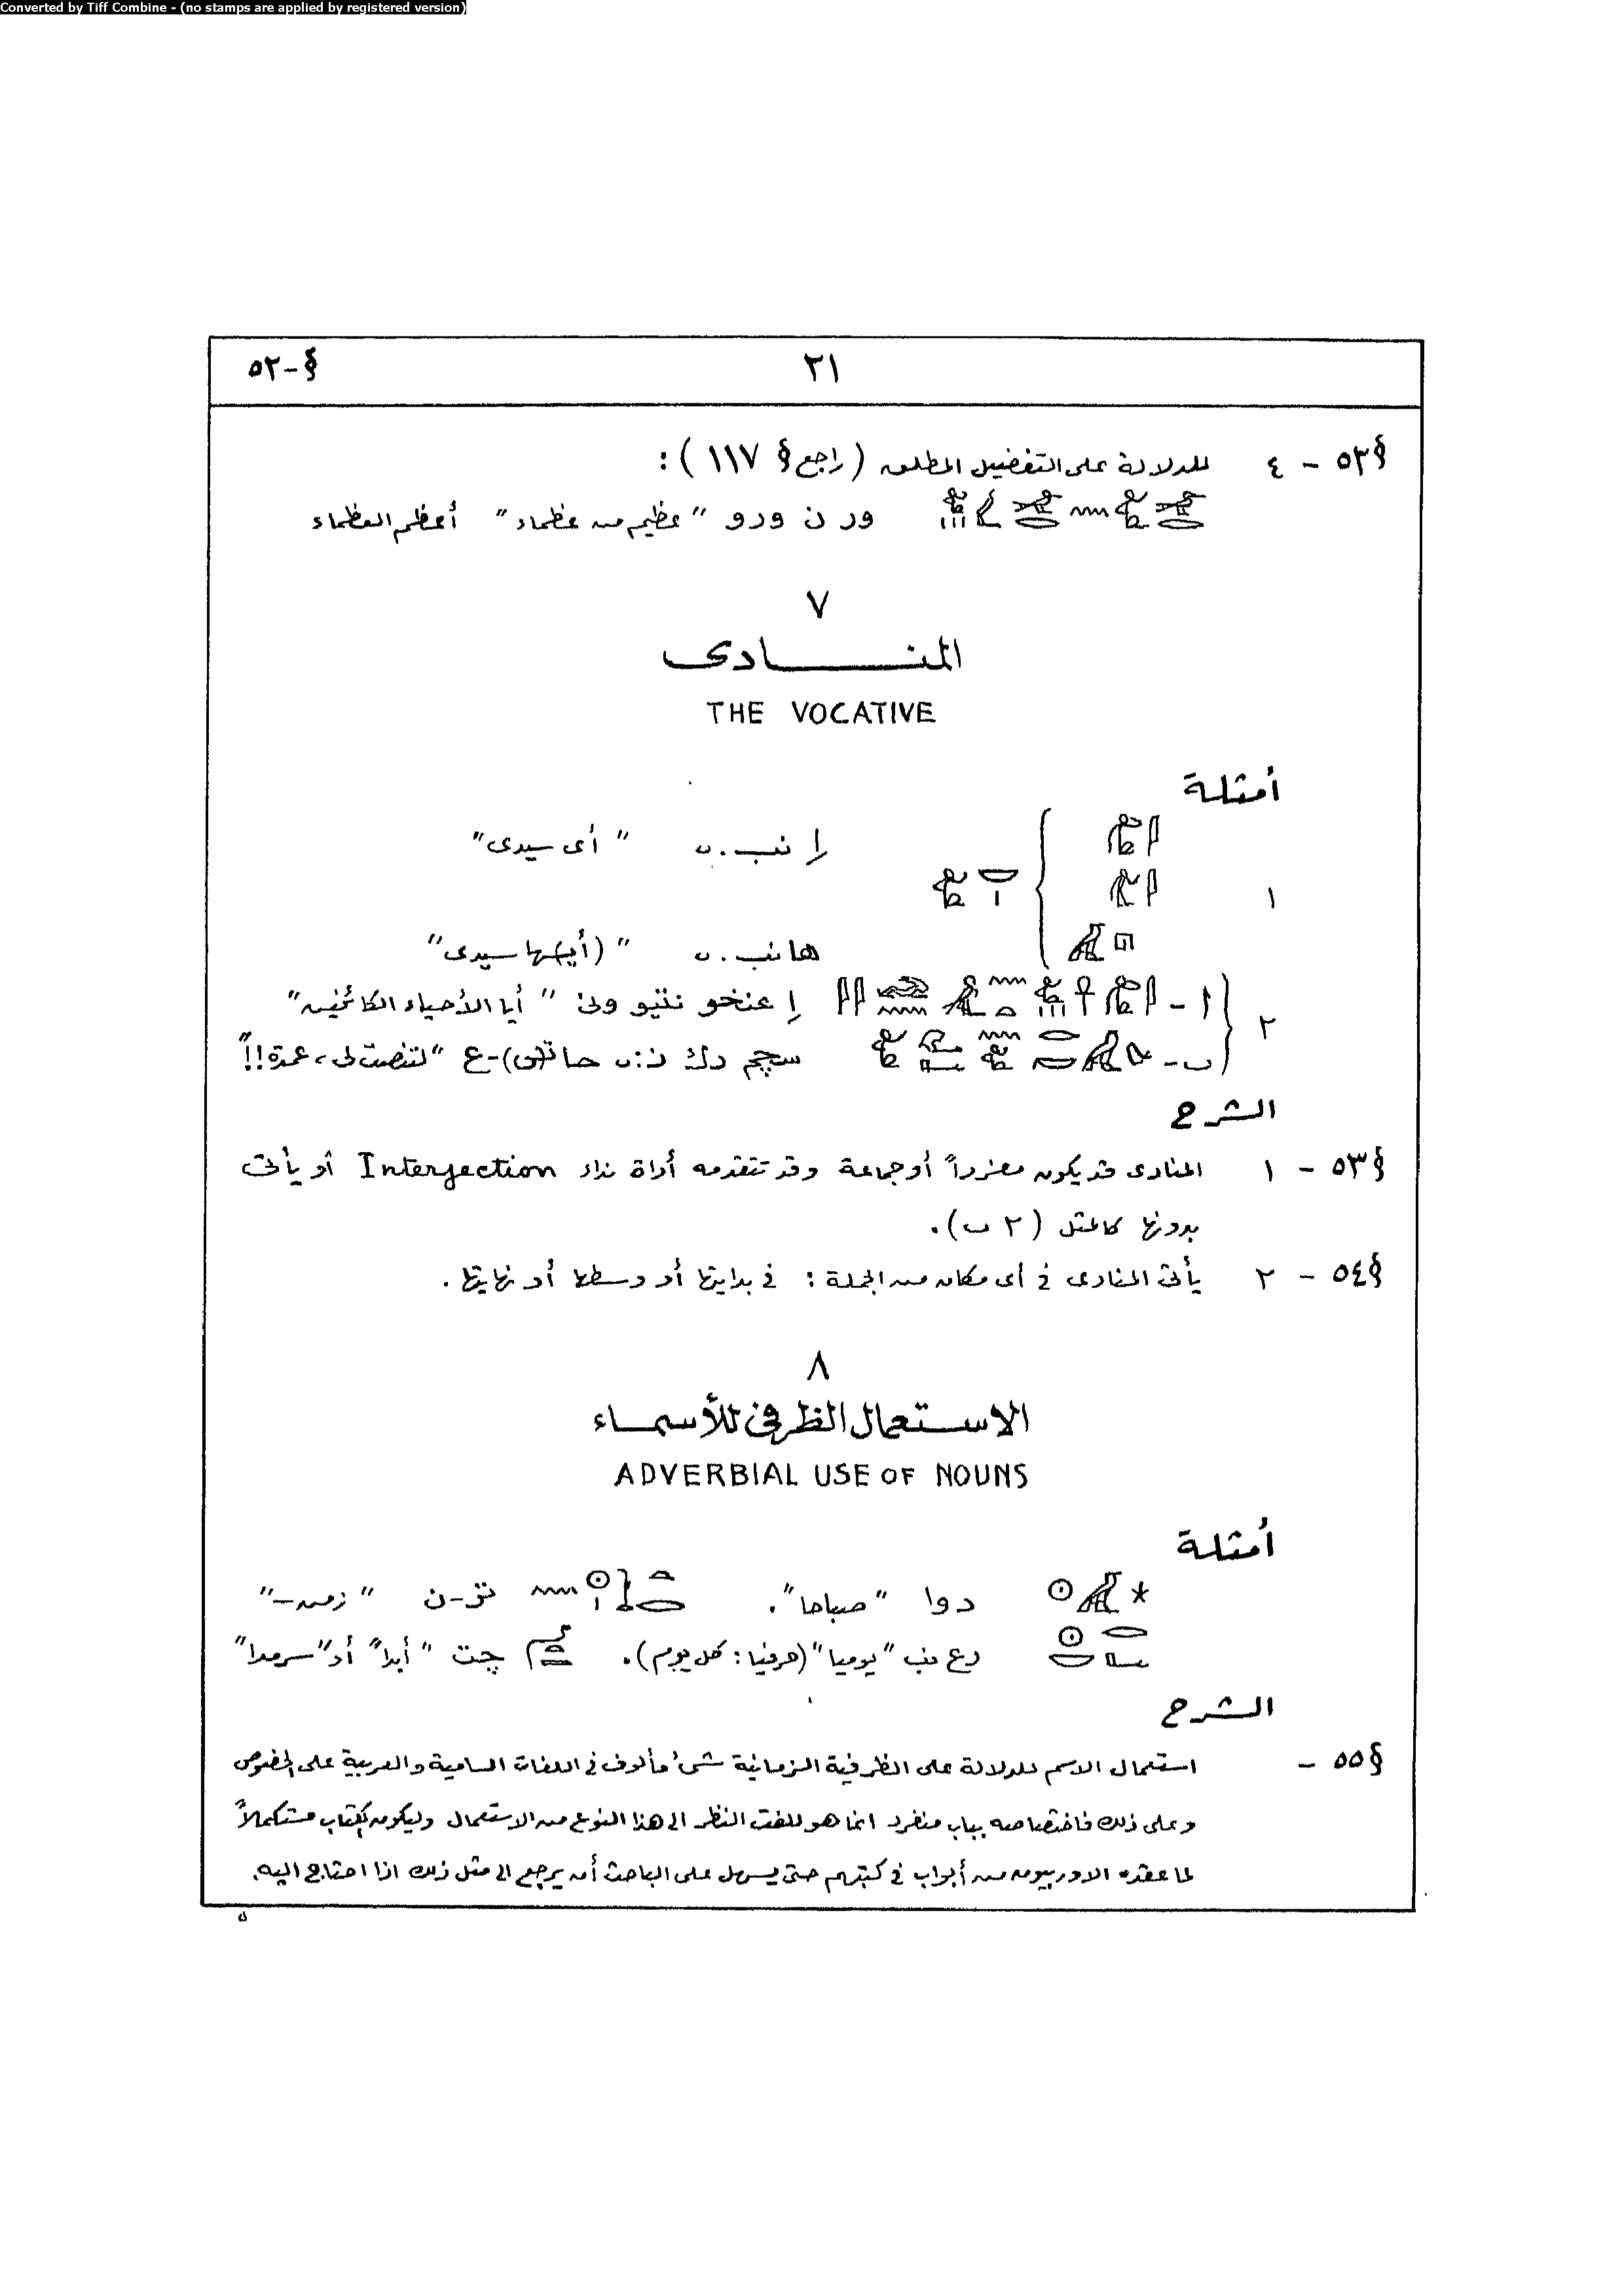 Converted by Tiff Combine - (no stamps are applied by registered version)
§-٥٢
٢١
§٥٢ - ٤ للدلالة على التفضيل المطلق (راجع § ١١٧):
ور ن ورو "عظيم من عظماء" أعظم العظماء
٧
المنادى
THE VOCATIVE
أمثلة
إ نب.ى "أى سيدى"
١
ها نب.ى "(أي)ها سيدى"
٢ ا- إ عنخو نتيو ونى "أيا الأحياء الكائنين"
ب- سچم رك ن.ى حاتى-ع "لتنصت لى، عمدة!!"
الشرح
§٥٣ - ١ المنادى قد يكون مفرداً أو جماعة وقد تتقدمه أداة نداء Interjection أو يأتى
بدونها كالمثل (٢ ب).
§٥٤ - ٢ يأتى المنادى فى أى مكان من الجملة: فى بدايتها أو وسطها أو نهايتها.
٨
الاستعمال الظرفى للأسماء
ADVERBIAL USE OF NOUNS
أمثلة
دوا "صباحا". تر-ن "زمن-"
رع نب "يوميا" (حرفيا: كل يوم). چت "أبدا" أو "سرمدا"
الشرح
§٥٥ - استعمال الاسم للدلالة على الظرفية الزمانية شئ مألوف فى اللغات السامية والعربية على الخصوص
وعلى ذلك فاختصاصه بباب منفرد انما هو للفت النظر الى هذا النوع من الاستعمال وليكون الكتاب مستكملاً
لما عقده الاوربيون من أبواب فى كتبهم حتى يسهل على الباحث أن يرجع الى مثل ذلك اذا احتاج اليه.